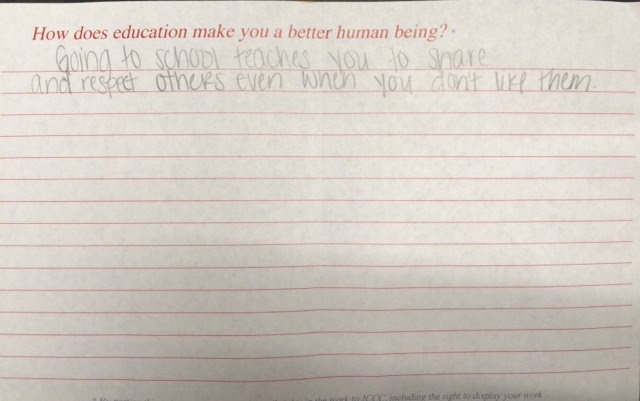 How does education make you a better human being?
Going to school teaches you to share
and respect others even when you don't like them.
work to JCCC, including the right to display your work